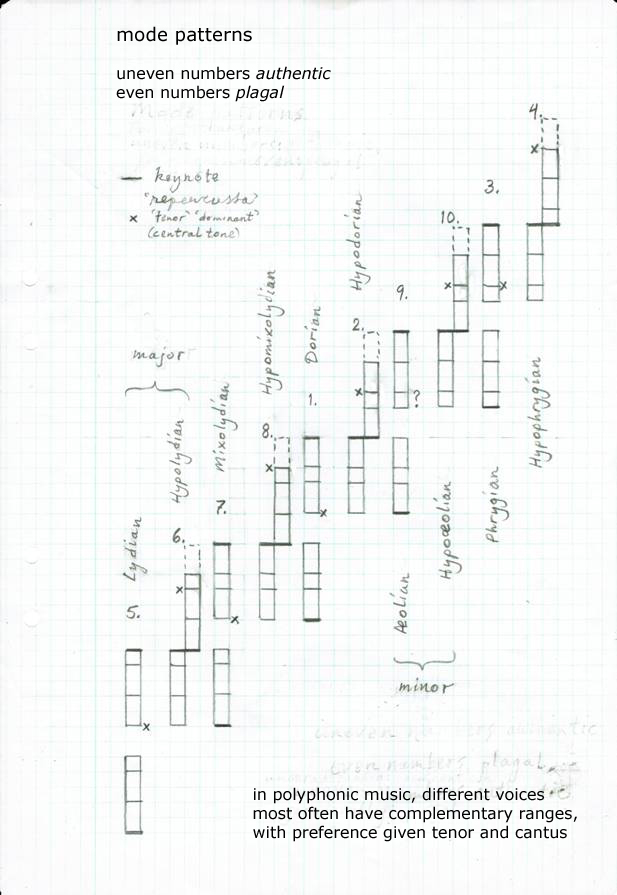 mode patterns
uneven numbers authentic
even numbers plagal
Mode patterns
keynote
"repercussa"
x "tenor" "dominant"
(central tone)
4.
3.
10.
Hypodorian
9.
2.
Hypomixolydian
Dorian
1.
major
Mixolydian
8.
Hypolydian
7.
6.
Lydian
5.
?
Hypophrygian
Phrygian
Hypoæolian
Æolian
minor
uneven numbers authentic
even numbers plagal
in polyphonic music, different voices
most often have complementary ranges,
with preference given tenor and cantus